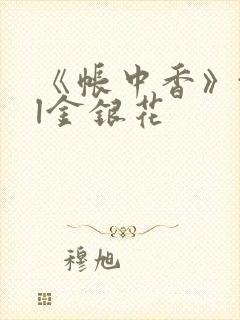 《帐中香》
|金银花
穆旭